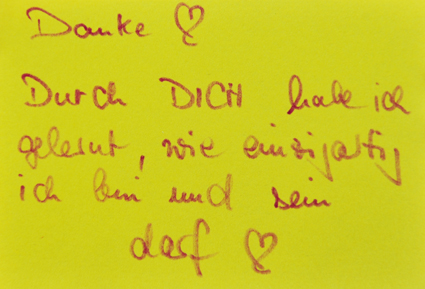 Danke ♡
Durch DICH habe ich
gelernt, wie einzigartig
ich bin und sein
darf ♡